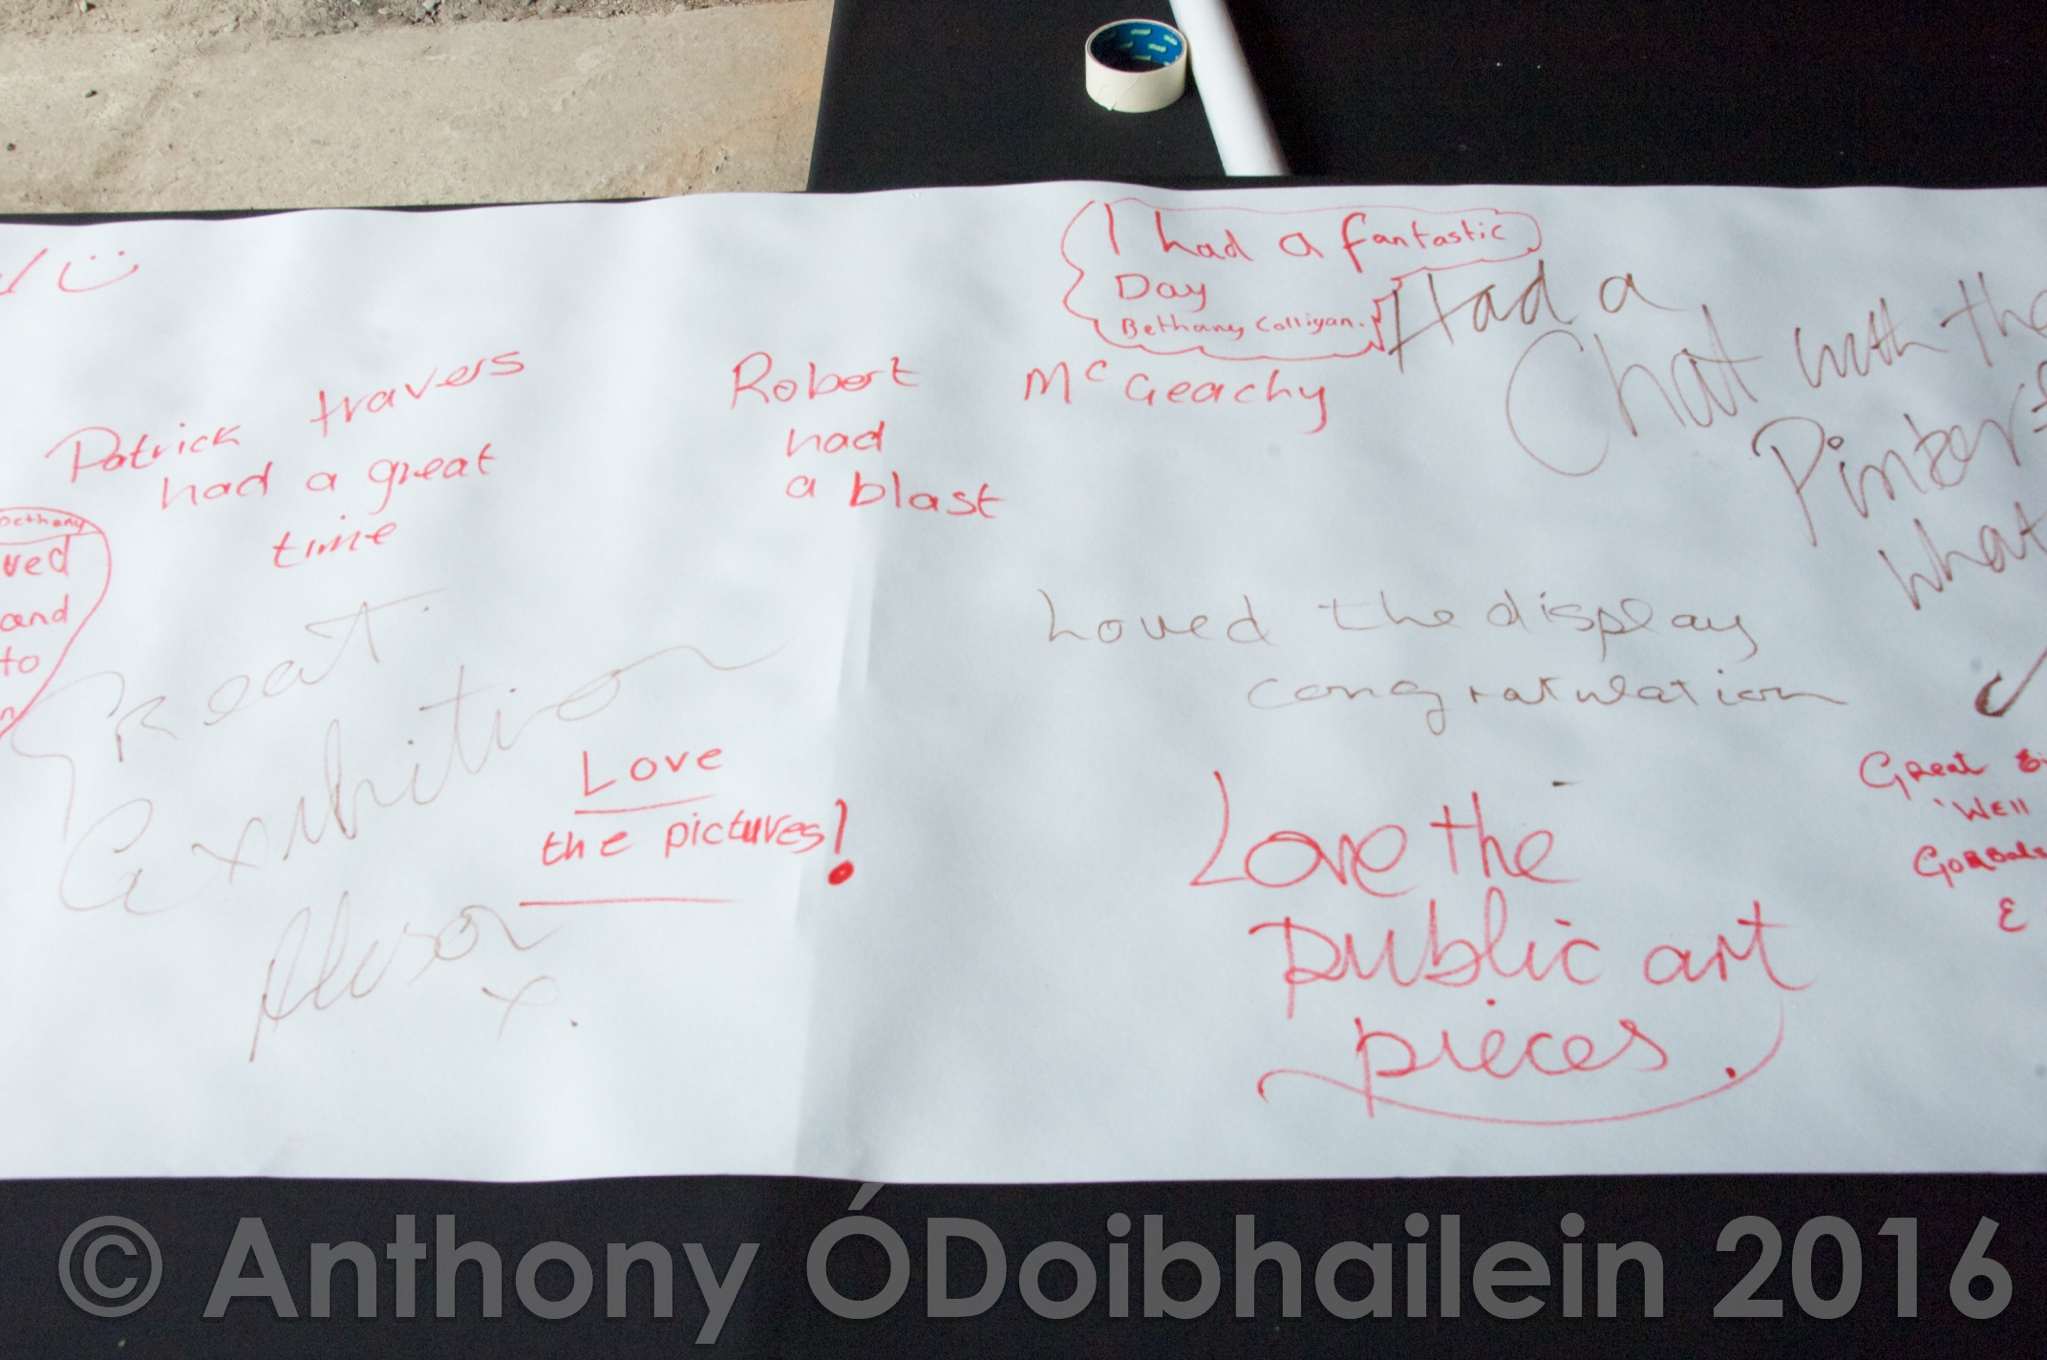 I had a fantastic
Day
Bethany Colligan.
Had a
Chat with the
what
Patrick travers
had a great
time
Robert McGeachy
had
a blast
Bethany
ved
and
to
Great
Exhibition
Alison
x.
Love
the pictures!
Loved the display
congratulation
Love the
public art
pieces.
Great
'Well
E
© Anthony ÓDoibhailein 2016